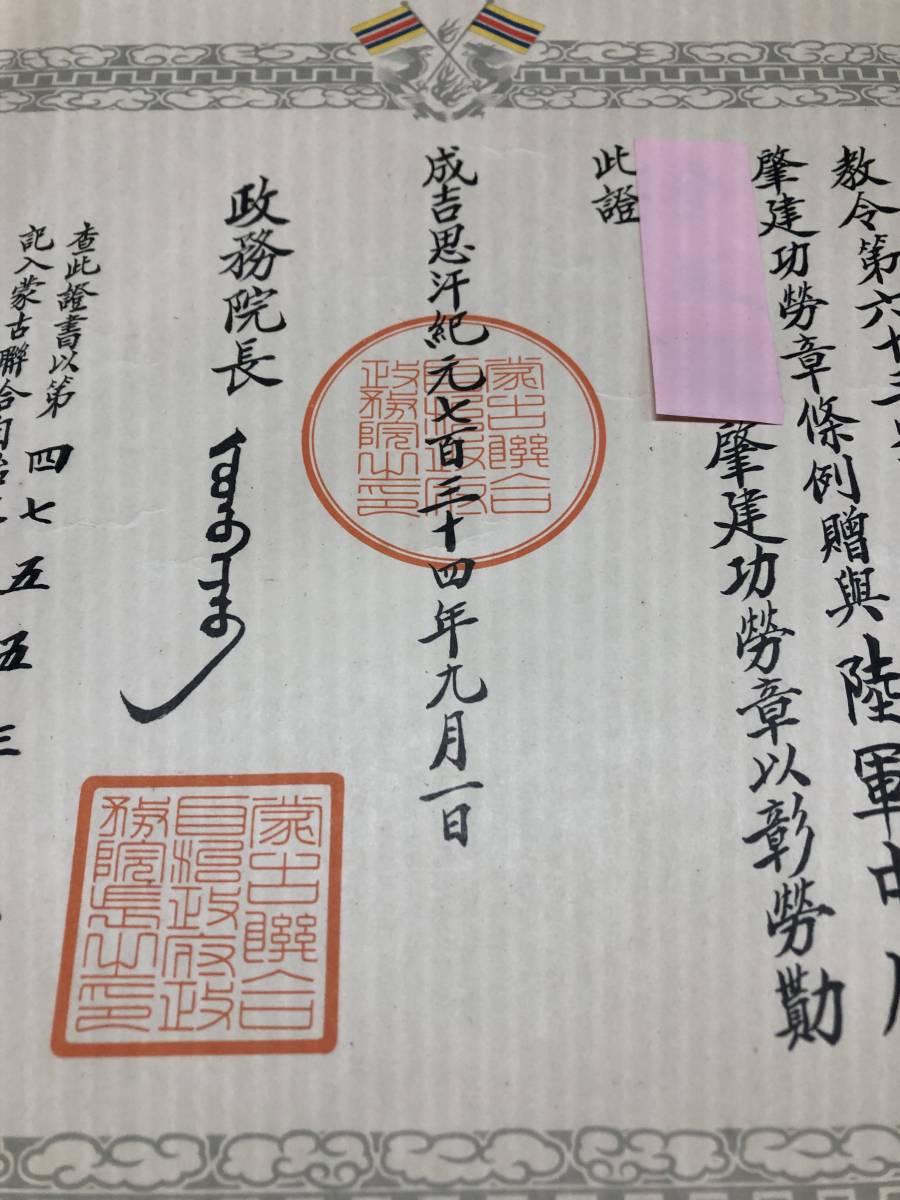 教令第六十三
肇建功勞章條例贈與陸軍中
肇建功勞章以彰勞勩
此證
成吉思汗紀元七百三十四年九月一日
蒙古聯合
自治政府
政務院之印
政務院長
ᠳᠡ
蒙古聯合
自治政府政
務院長之印
查此證書以第四七五五三
記入蒙古聯合自治